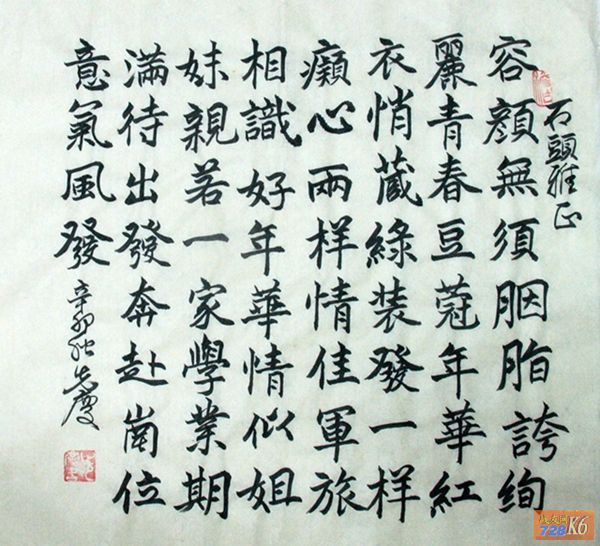 石頭雅正
容顏無須胭脂誇絢
麗青春豆蔻年華紅
衣悄藏綠裝發一样
癩心兩样情佳軍旅
相識好年華情似姐
妹親若一家學業期
滿待出發奔赴崗位
意氣風發
辛卯
728 K6